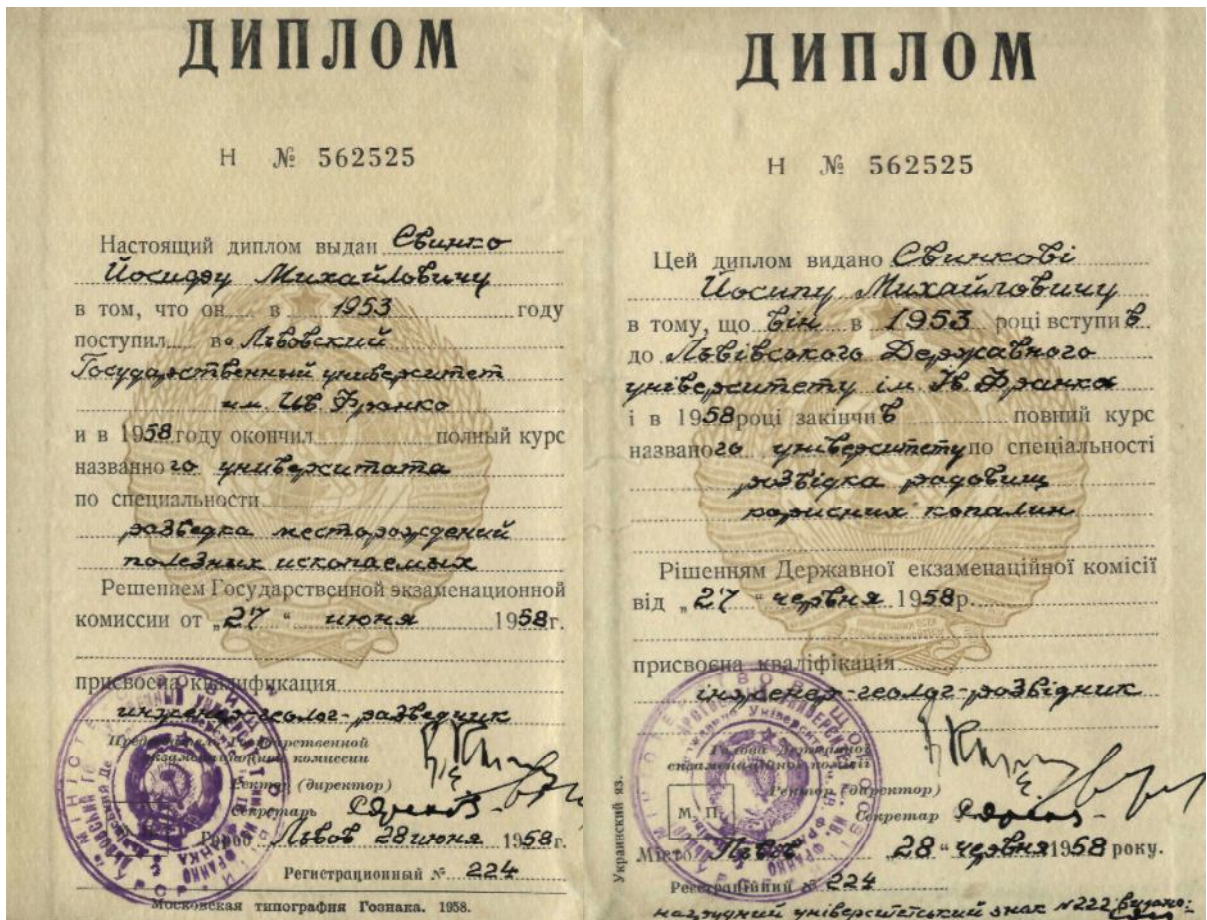 ДИПЛОМ
Н № 562525
Настоящий диплом выдан Свинко
Йосифу Михайловичу
в том, что он в 1953 году
поступил во Львовский
Государственный университет
им. Ив Франко
и в 1958 году окончил полный курс
названного университета
по специальности
разведка месторождений
полезных ископаемых
Решением Государственной экзаменационной
комиссии от „27" июня 1958г.
присвоена квалификация
инженер-геолог-разведчик
Председатель Государственной
экзаменационной комиссии
Ректор (директор)
Секретарь
Город Львов 28 июня 1958г.
Регистрационный № 224
Московская типография Гознака. 1958.
ДИПЛОМ
Н № 562525
Цей диплом видано Свинкові
Йосипу Михайловичу
в тому, що він в 1953 році вступив
до Львівського Державного
університету ім. Ів Франка
і в 1958 році закінчив повний курс
названого університету по спеціальності
розвідка родовищ
корисних копалин
Рішенням Державної екзаменаційної комісії
від „27" червня 1958р.
присвоєна кваліфікація
інженер-геолог-розвідник
Голова Державної
екзаменаційної комісії
Ректор (директор)
М. П.
Секретар
Місто Львов 28 " червня 1958 року.
Реєстраційний № 224
нагрудний університетський знак №222 видано:
Украинский яз.